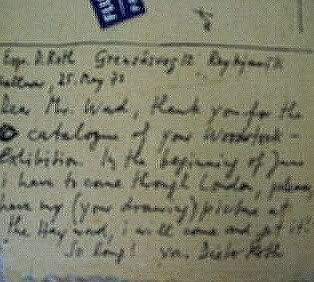 FLU
Exp. D. Roth Grensásveg 12 Reykjavik
25. May 73
Dear Mr. Ward, thank you for the
catalogue of your Woodstock-
Exhibition. In the beginning of June
i have to come through London, please,
have my (your drawing) picture at
the Hayward, i will come and get it!
So long! yrs. Dieter Roth